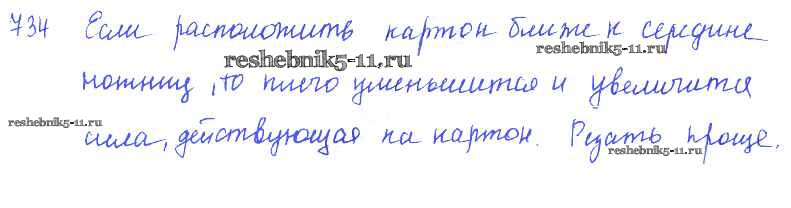 734 Если расположить картон ближе к середине
reshebnik5-11.ru reshebnik5-11.ru
ножниц, то плечо уменьшится и увеличится
reshebnik5-11.ru
сила, действующая на картон. Резать проще.
reshebnik5-11.ru